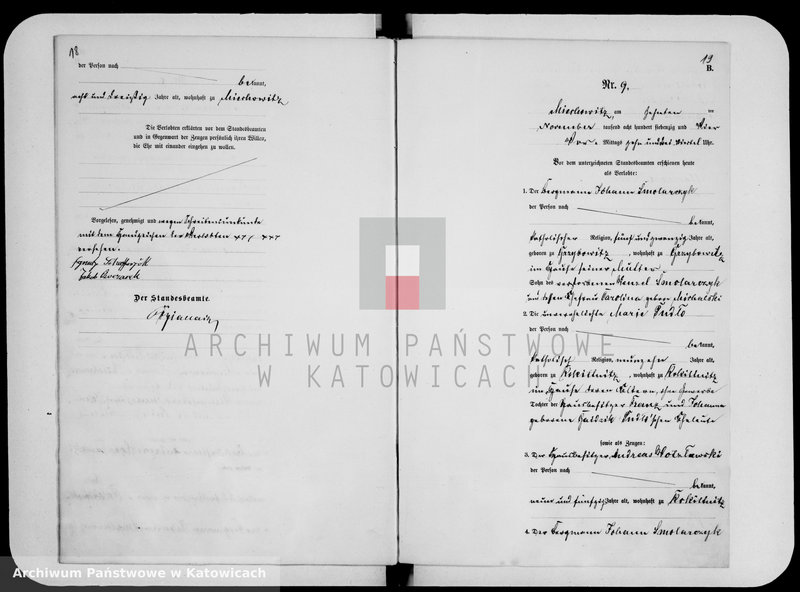 18
der Person nach
bekannt,
acht und dreißig Jahre alt, wohnhaft zu Miechowitz
Die Verlobten erklärten vor dem Standesbeamten
und in Gegenwart der Zeugen persönlich ihren Willen,
die Ehe mit einander eingehen zu wollen.
Vorgelesen, genehmigt und wegen Schreibensunkunde
mit dem Handzeichen der Verlobten +++ +++
versehen.
Jakob
Der Standesbeamte.
19
B.
Nr. 9.
Miechowitz, am zehnten
November tausend acht hundert siebenzig und vier
Vor Mittags zehn und Viertel Uhr.
Vor dem unterzeichneten Standesbeamten erschienen heute
als Verlobte:
1. Der Bergmann Johann Smolarczyk
der Person nach
bekannt,
katholischer Religion, fünf und zwanzig Jahre alt,
geboren zu Grzybowitz, wohnhaft zu Grzybowitz
im Hause seiner Mutter
Sohn des verstorbenen Smolarczyk
und dessen Ehefrau Carolina geborene Michalski
2. Die unverehelichte Marie Pudlo
der Person nach
bekannt,
katholisch Religion, neunzehn Jahre alt,
geboren zu Rokittnitz, wohnhaft zu Rokittnitz
im Hause deren Eltern, ohne Gewerbe
Tochter der Hausbesitzer Franz und Johanna
geborene Pudlo'schen Eheleute
sowie als Zeugen:
3. Der Hausbesitzer Andreas
der Person nach
bekannt,
neun und fünfzig Jahre alt, wohnhaft zu Rokittnitz
4. Der Bergmann Johann Smolarczyk
ARCHIWUM PAŃSTWOWE
W KATOWICACH
Archiwum Państwowe w Katowicach